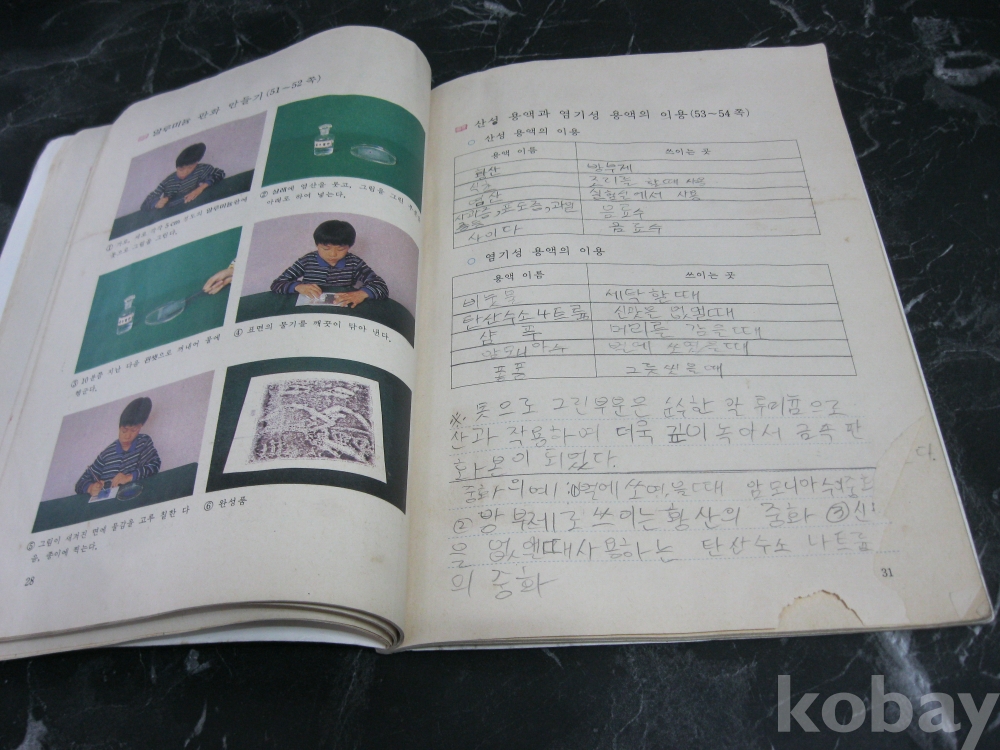 판화 만들기(51~52쪽)
② 샬레에 염산을 붓고, 그림을 그린
아래로 하여 넣는다.
으로 그림을 그린다.
③ 10분쯤 지난 다음 핀셋으로 꺼내어 물에
헹군다.
④ 표면의 물기를 깨끗이 닦아 낸다.
⑤ 그림이 새겨진 면에 물감을 고루 칠한 다
음, 종이에 찍는다.
⑥ 완성품
28
산성 용액과 염기성 용액의 이용(53~54쪽)
산성 용액의 이용
용액 이름 쓰이는 곳
방부제
식초 요리를 할때 사용
염산 실험실에서 사용
포도즙, 과일 음료수
사이다 음료수
염기성 용액의 이용
용액 이름 쓰이는 곳
비눗물 세탁할때
탄산수소나트륨 신맛을 없앨때
샴푸 머리를 감을때
암모니아수 벌에 쏘였을때
퐁퐁 그릇 씻을때
※ 못으로 그린부분은 순수한 알루미늄으로
산과 작용하여 더욱 깊이 녹아서 금속 판
화본이 되었다.
중화의 예: ①벌에 쏘였을때 암모니아수
② 방부제로 쓰이는 황산의 중화 ③ 신
을 없앨때 사용하는 탄산수소 나트륨
의 중화
다.
31
kobay